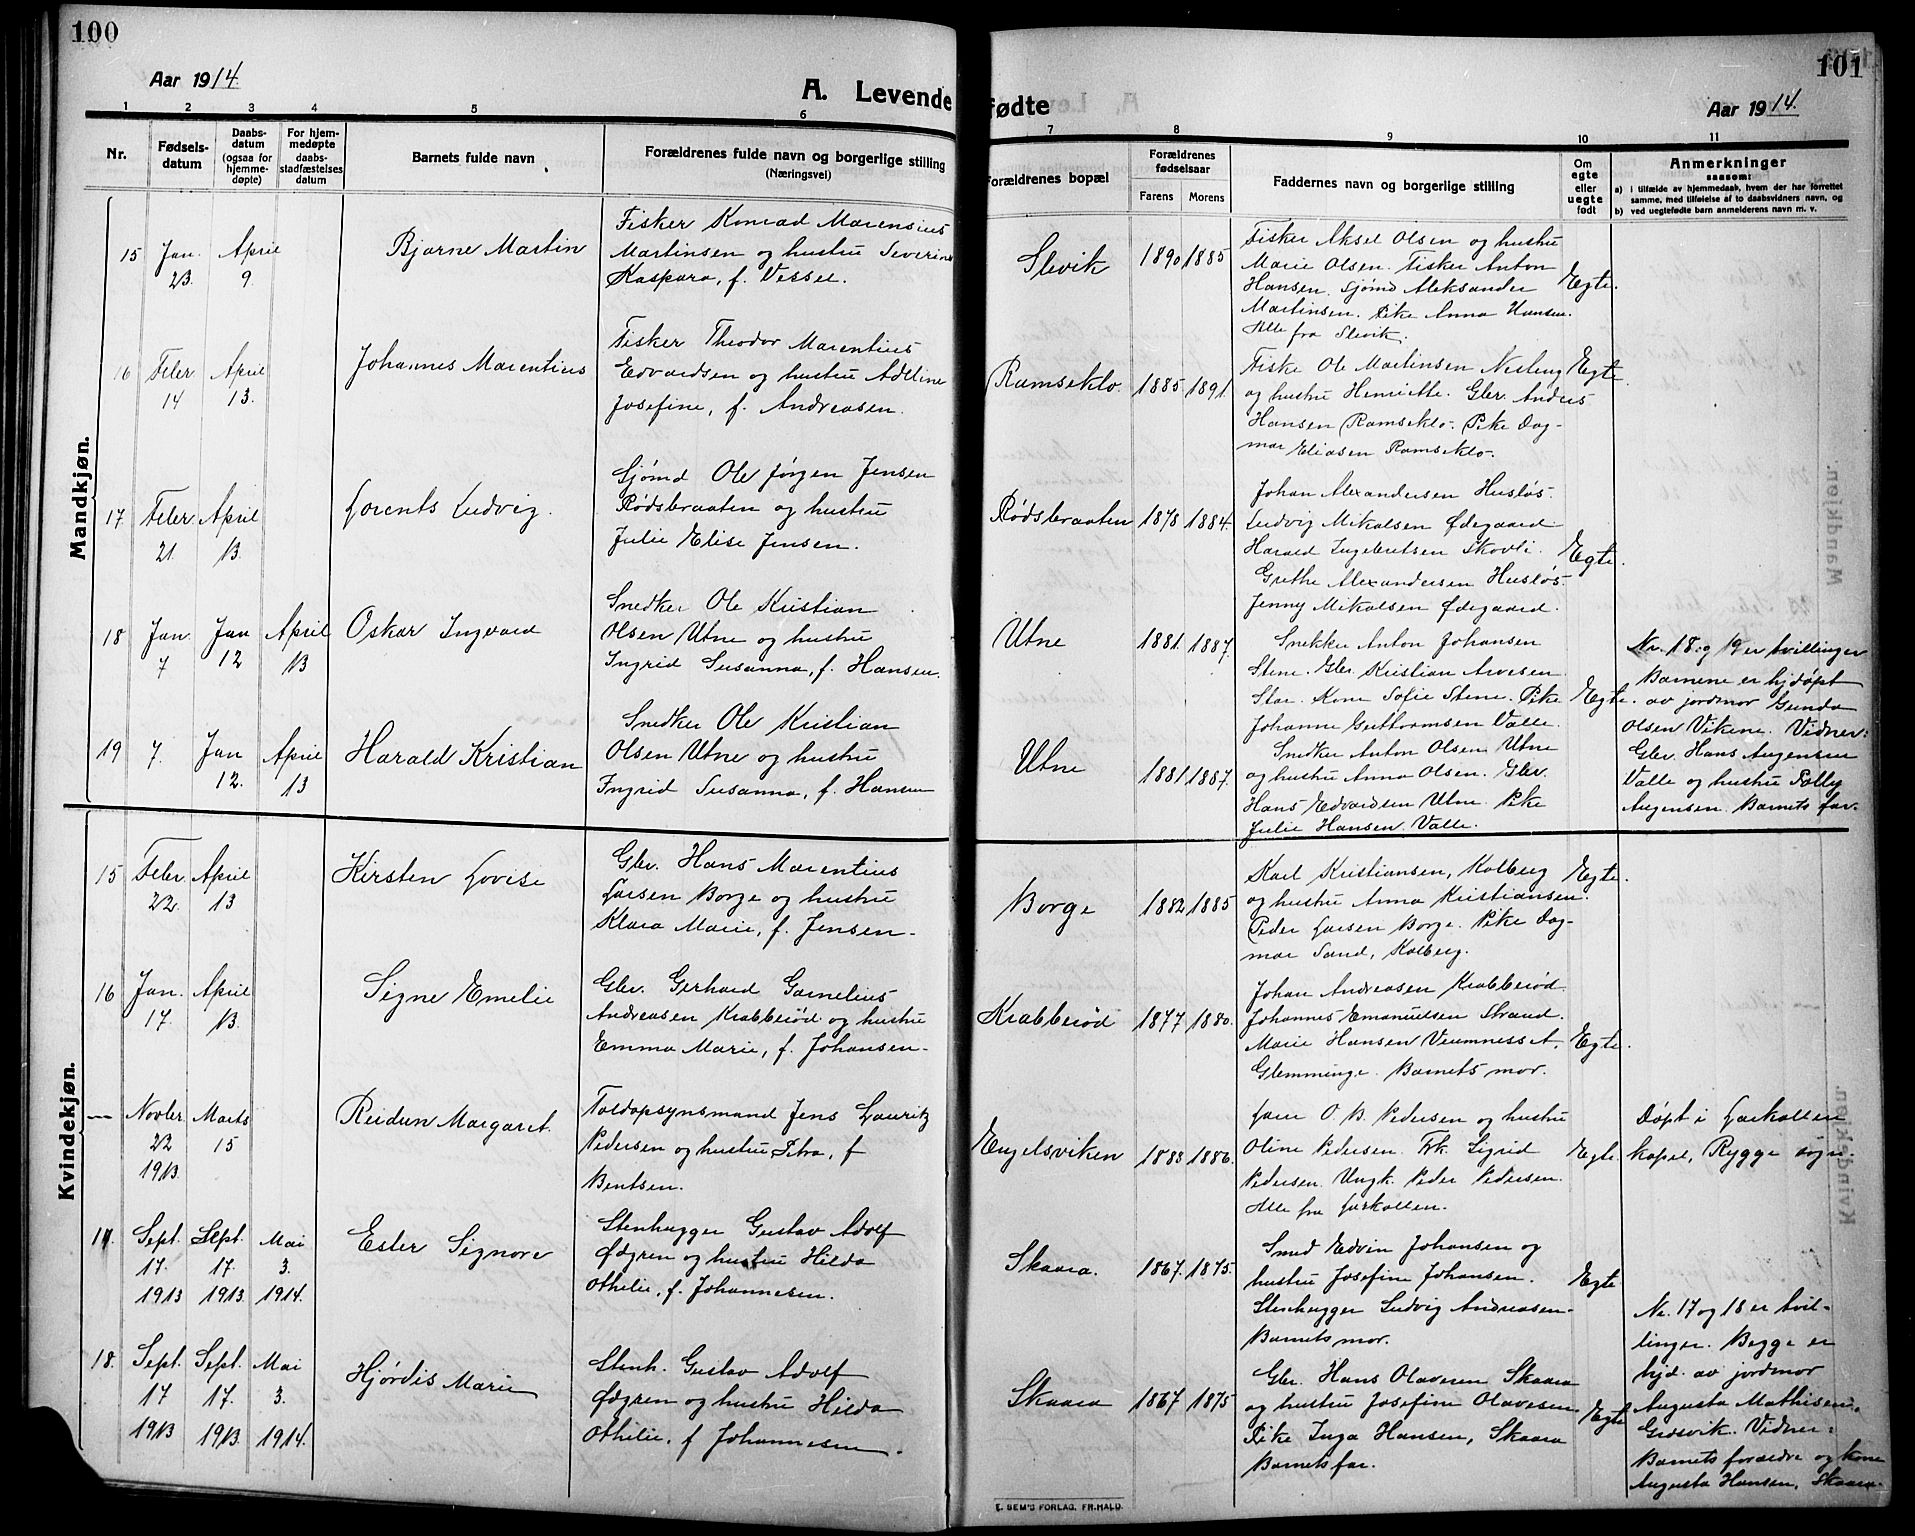 100
Aar 1914.
A. Levende
1
2
3
4
5
6
Nr.
Fødsels-
datum
Daabs-
datum
(ogsaa for
hjemme-
døpte)
For hjem-
medøpte
daabs-
stadfæstelses
datum
Barnets fulde navn
Forældrenes fulde navn og borgerlige stilling
(Næringsvei)
Mandkjøn.
15
Jan.
23.
April
9.
Bjarne Martin
Fisker Konrad Marensius
Martinsen og hustru Severine
Kaspara, f. Vessel.
16
Febr.
14
April
13.
Johannes Marentius
Fisker Theodor Marentius
Edvardsen og hustru Adeline
Josefine, f. Andreasen.
17.
Febr.
21
April
13.
Lorents Ludvig.
Sjømd Ole Jørgen Jensen
Rødsbraaten og hustru
Julie Elise Jensen.
18
Jan.
7
Jan
12
April
13
Oskar Ingvard
Snedker Ole Kristian
Olsen Utne og hustru
Ingrid Susanna, f. Hansen.
19
7.
Jan
12.
April
13
Harald Kristian
Snedker Ole Kristian
Olsen Utne og hustru
Ingrid Susanna, f. Hansen
Kvindekjøn.
15
Febr.
22.
April
13
Kirsten Lovise
Gbr. Hans Marentius
Larsen Borge og hustru
Klara Marie, f. Jensen.
16
Jan.
17.
April
13.
Signe Emelie
Gbr. Gerhard Gornelius
Andreasen Krabberød og hustru
Emma Marie, f. Johansen.
—
Novbr
22
1913.
Marts
15
Reidun Margaret.
Toldopsynsmand Jens Lauritz
Pedersen og hustru Petra, f
Bentsen.
17.
Sept.
17.
1913
Sept.
17.
1913.
Mai
3.
1914.
Ester Signore
Stenhugger Gustav Adolf
Ødgren og hustru Hilda
Othilie, f. Johannesen.
18.
Sept.
17
1913
Sept.
17.
1913.
Mai
3.
1914.
Hjørdis Marie
Stenh. Gustav Adolf
Ødgren og hustru Hilda
Othilie, f Johannesen.
101
fødte
Aar 1914.
7
8
9
10
11
Forældrenes bopæl
Forældrenes
fødselsaar
Farens
Morens
Faddernes navn og borgerlige stilling
Om
egte
eller
uegte
født
Anmerkninger
saasom:
a) i tilfælde av hjemmedaab, hvem der har forrettet
samme, med tilføielse af to daabsvidners navn, og
b) ved uegtefødte barn anmelderens navn m. v.
Slevik
1890
1885
Fisker Aksel Olsen og hustru
Marie Olsen. Fisker Anton
Hansen. Sjømd Aleksander
Martinsen. Pike Anna Hansen.
Alle fra Slevik.
Egte.
Ramseklo.
1885
1891.
Fiske Ole Martinsen Nesleng
og hustru Henriette. Gbr. Anders
Hansen Ramseklo. Pike Dag-
mar Eliasen Ramseklo.
Egte.
Rødsbraaten
1878
1884.
Johan Alexandersen Husløs.
Ludvig Mikalsen Ødegaard
Harald Ingebretsen Skovli.
Grethe Alexandersen Husløs.
Jenny Mikalsen Ødegaard.
Egte.
Utne
1881.
1887.
Snekker Anton Johansen
Stene. Gbr. Kristian Arvesen
Stoe. Kone Sofie Stene. Pike
Johanne Guttormsen Valle.
Egte.
Nr. 18 og 19 er tvillinger
Barnene er hjdøpt
av jordmor Gunda
Olsen Vikene. Vidner:
Gbr. Hans Augensen
Valle og hustru Polly
Augensen. Barnets far.
Utne
1881.
1887.
Snedker Anton Olsen Utne
og hustru Anna Olsen. Gbr.
Hans Edvardsen Utne. Pike
Julie Hansen Valle.
Borge
1882
1885
Karl Kristiansen, Kolberg
og hustru Anna Kristiansen.
Peder Larsen Borge. Pike Dag-
mar Sand, Kolberg.
Egte.
Krabberød
1877
1880.
Johan Andreasen Krabberød.
Johannes Emanuelsen Strand.
Marie Hansen Veumnesset,
Glemminge. Barnets mor.
Egte.
Engelsviken
1883
1886.
O. B. Pedersen og hustru
Oline Pedersen. Frk. Sigrid
Pedersen. Ungk. Peder Pedersen.
Alle fra Larkollen.
Egte.
Døpt i Larkollen
kapel, Rygge sogn.
Skaara.
1867.
1875.
Smed Edvin Johansen og
hustru Josefine Johansen.
Stenhugger Ludvig Andreasen.
Barnets mor.
Egte
Nr. 17 og 18 er tvil-
linger. Begge er
hjd. av jordmor
Augusta Mathisen,
Gressvik. Vidner:
Barnets forældre og kone
Augusta Hansen, Skaara.
Skaara
1867
1875
Gbr. Hans Olavesen Skaara
og hustru Josefine Olavesen
Pike Inga Hansen, Skaara
Barnets far.
Egte
E. SEM'S FORLAG, FR.HALD.